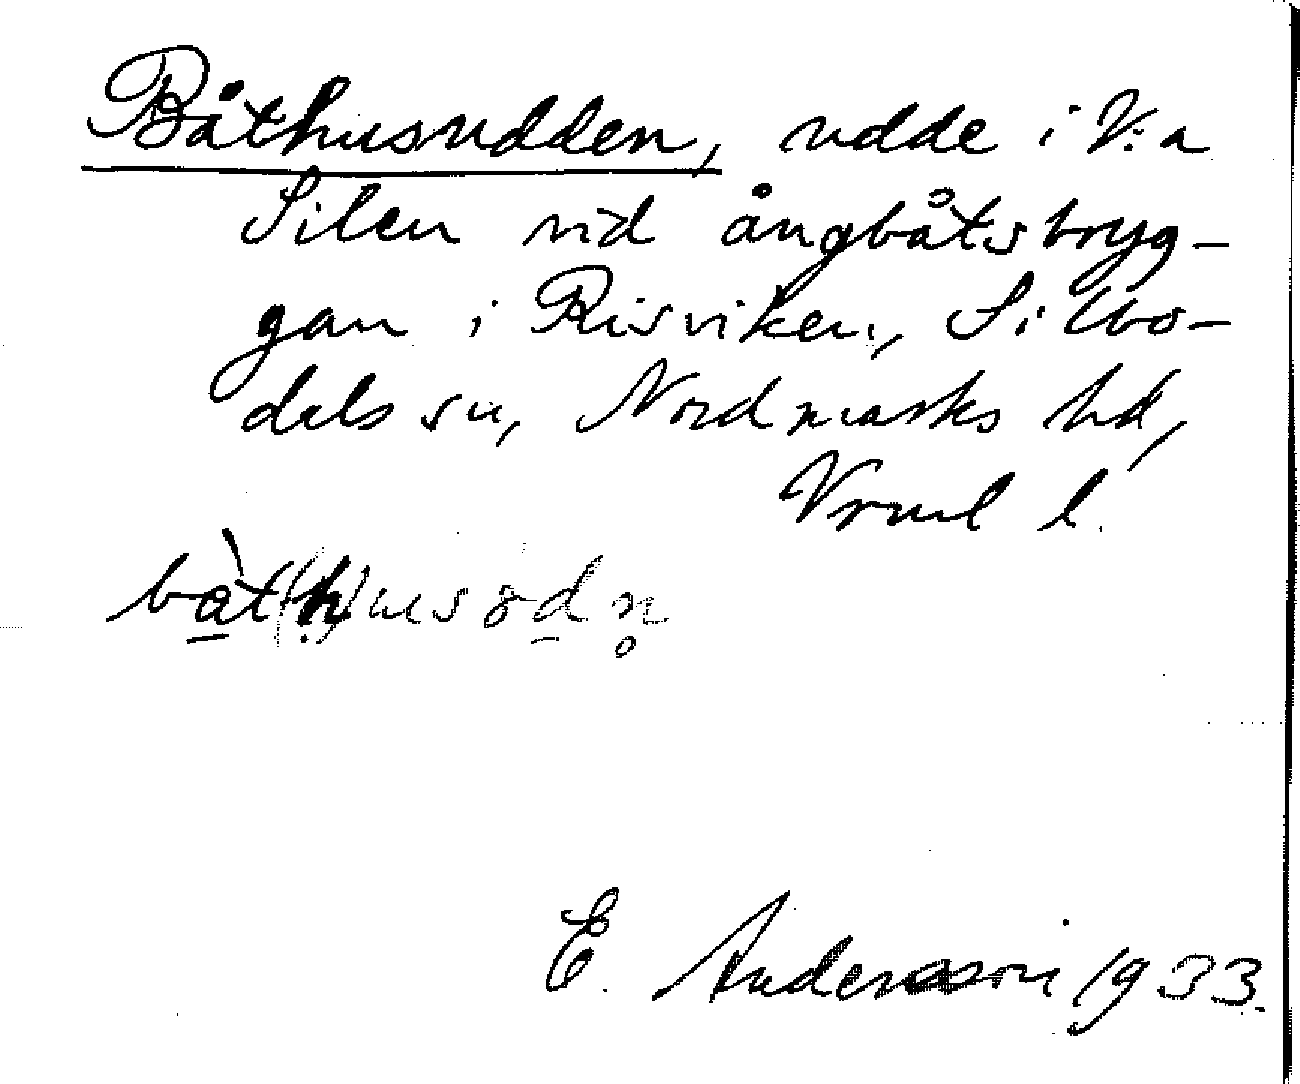 Båthusudden, udde i V:a
Silen vid ångbåtsbryg-
gan i Risviken, Silbo-
dals sn, Nordmarks hd,
Vrml l.
bàt(h)usodn̥
E. Andersson 1933.